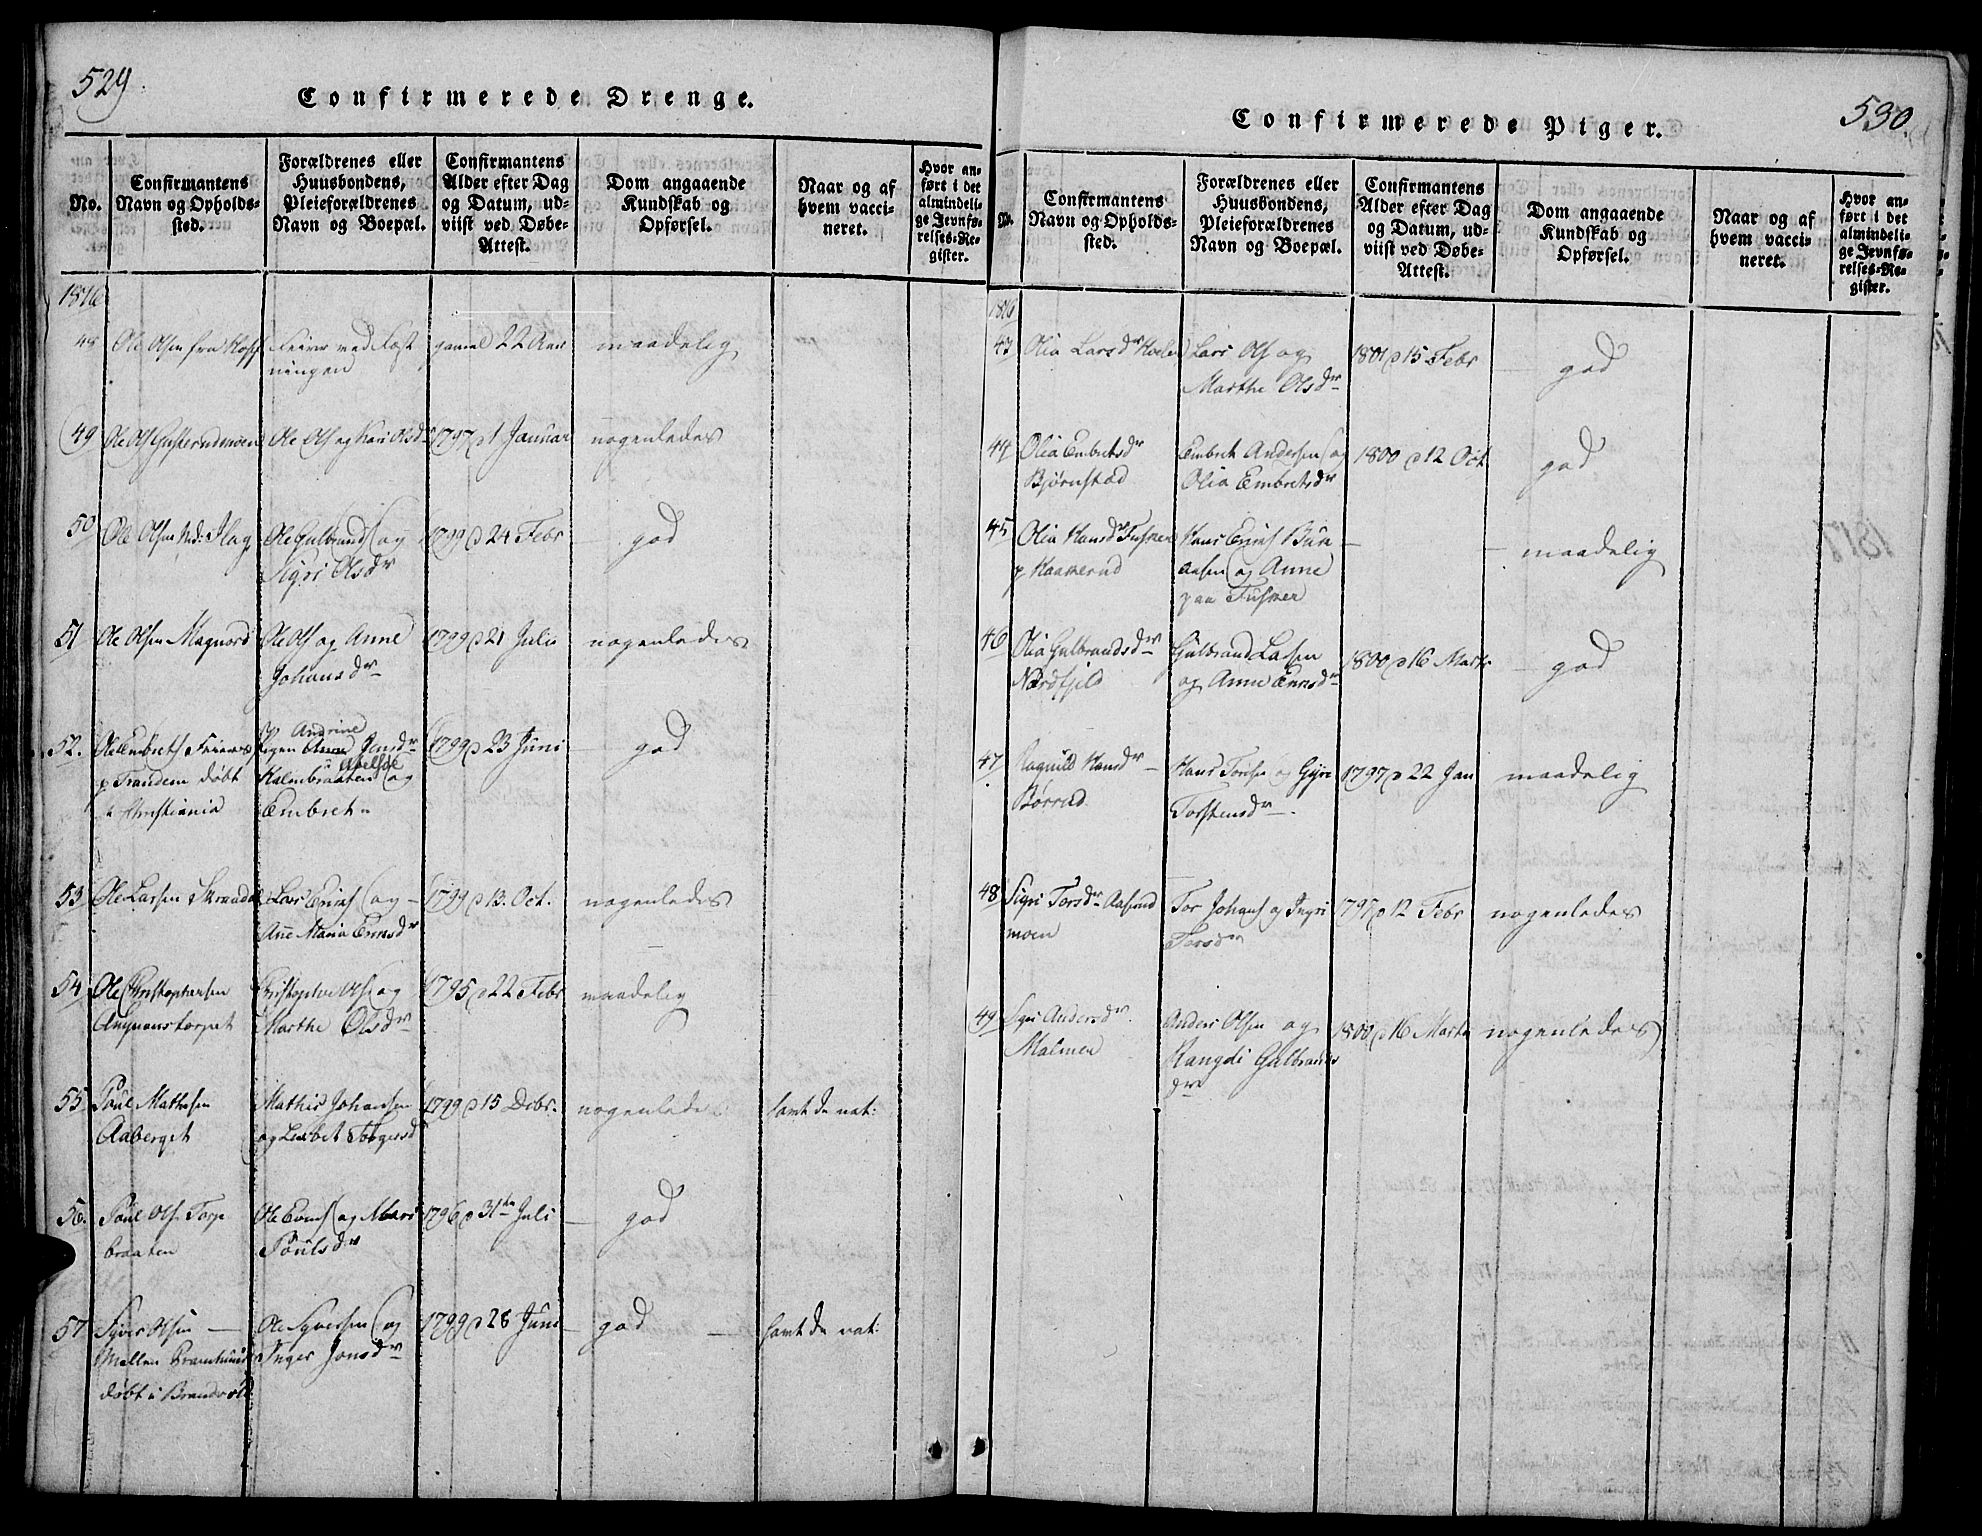 529.
Confirmerede Drenge.
No.
Confirmantens
Navn og Opholds-
sted.
Forældrenes eller
Huusbondens,
Pleieforældrenes
Navn og Boepæl.
Confirmantens
Alder efter Dag
og Datum, ud-
viist ved Døbe-
Attest.
Dom angaaende
Kundskab og
Opførsel.
Naar og af
hvem vacci-
neret.
Hvor an-
ført i det
almindeli-
ge Jevnfø-
relses-Re-
gister.
1816
48 Ole Olsen fra
ved Fæst
ningen
gamel 22 Aar
maadelig
49 Ole Ols Gusterudmoen
Ole Ols og Kari Olsdr
1797 d 1 Januar
nogenledes
50 Ole Olsen
Ole Gulbrands og
Sigri Olsdr
1799 d 24 Febr
god
51 Ole Olsen Magnord
Ole Ols og Anne
Johansdr
1799 d 21 Julii
nogenledes
52. Ole Embrets
p Trandem døbt
i Christiania
Pigen Andrine Jensdr
og
Embret
1799 d 23 Juni
god
53 Ole Larsen
Lars Erics og
Ane Maria Ericsdr
1799 d 13. Oct.
nogenledes
54 Ole Christophersen
Christopher Ols og
Marthe Olsdr
1795 d 22 Febr
maadelig
55 Poul Mathesen
Aaberget
Mathis Johansen
og Lisbet Torgersd
1799 d 15 Debr.
nogenledes
samt de nat:
56. Poul Ols Torp
braaten
Ole Evens og Mari
Poulsdr
1796 d 31te Juli
god
57 Syver Olsen
Mellem
døbt i Brandvold
Ole Syversen og
Inger Jonsdr
1799 d 28 Juni
god
samt de nat:
530.
Confirmerede Piger.
N.
Confirmantens
Navn og Opholds-
sted.
Forældrenes eller
Huusbondens,
Pleieforældrenes
Navn og Boepæl.
Confirmantens
Alder efter Dag
og Datum, ud-
viist ved Døbe-
Attest.
Dom angaaende
Kundskab og
Opførsel.
Naar og af
hvem vacci-
neret.
Hvor an-
ført i det
almindeli-
ge Jevnfø-
relses-Re-
gister.
1816
43 Olia Larsdr
Lars Ols og
Marthe Olsdr
1801 d 15 Febr
god
44 Olia Embretsdr
Bjørnstad
Embret Andersen og
Olia Embretsdr
1800 d 12 Oct
god
45 Olia Hansdr
p Kaaterud
Hans Erics
aasen og Anne
paa
maadelig
46 Olia Gulbrandsdr
Nordfjeld
Gulbrand Larsen
og Anne Ericsdr
1800 d 16 Marts
god
47 Ragnild Hansdr
Børrud
Hans og
Torstensdr.
1797 d 22 Jan
maadelig
48 Sigri Torsdr Aaserud
moen
Tor Johans og Ingri
Torsdr
1797 d 12 Febr
nogenledes
49 Sigri Andersdr.
Malmen
Anders Olsen og
Rangdi Gulbrands
dr
1800 d 16 Marts
nogenledes